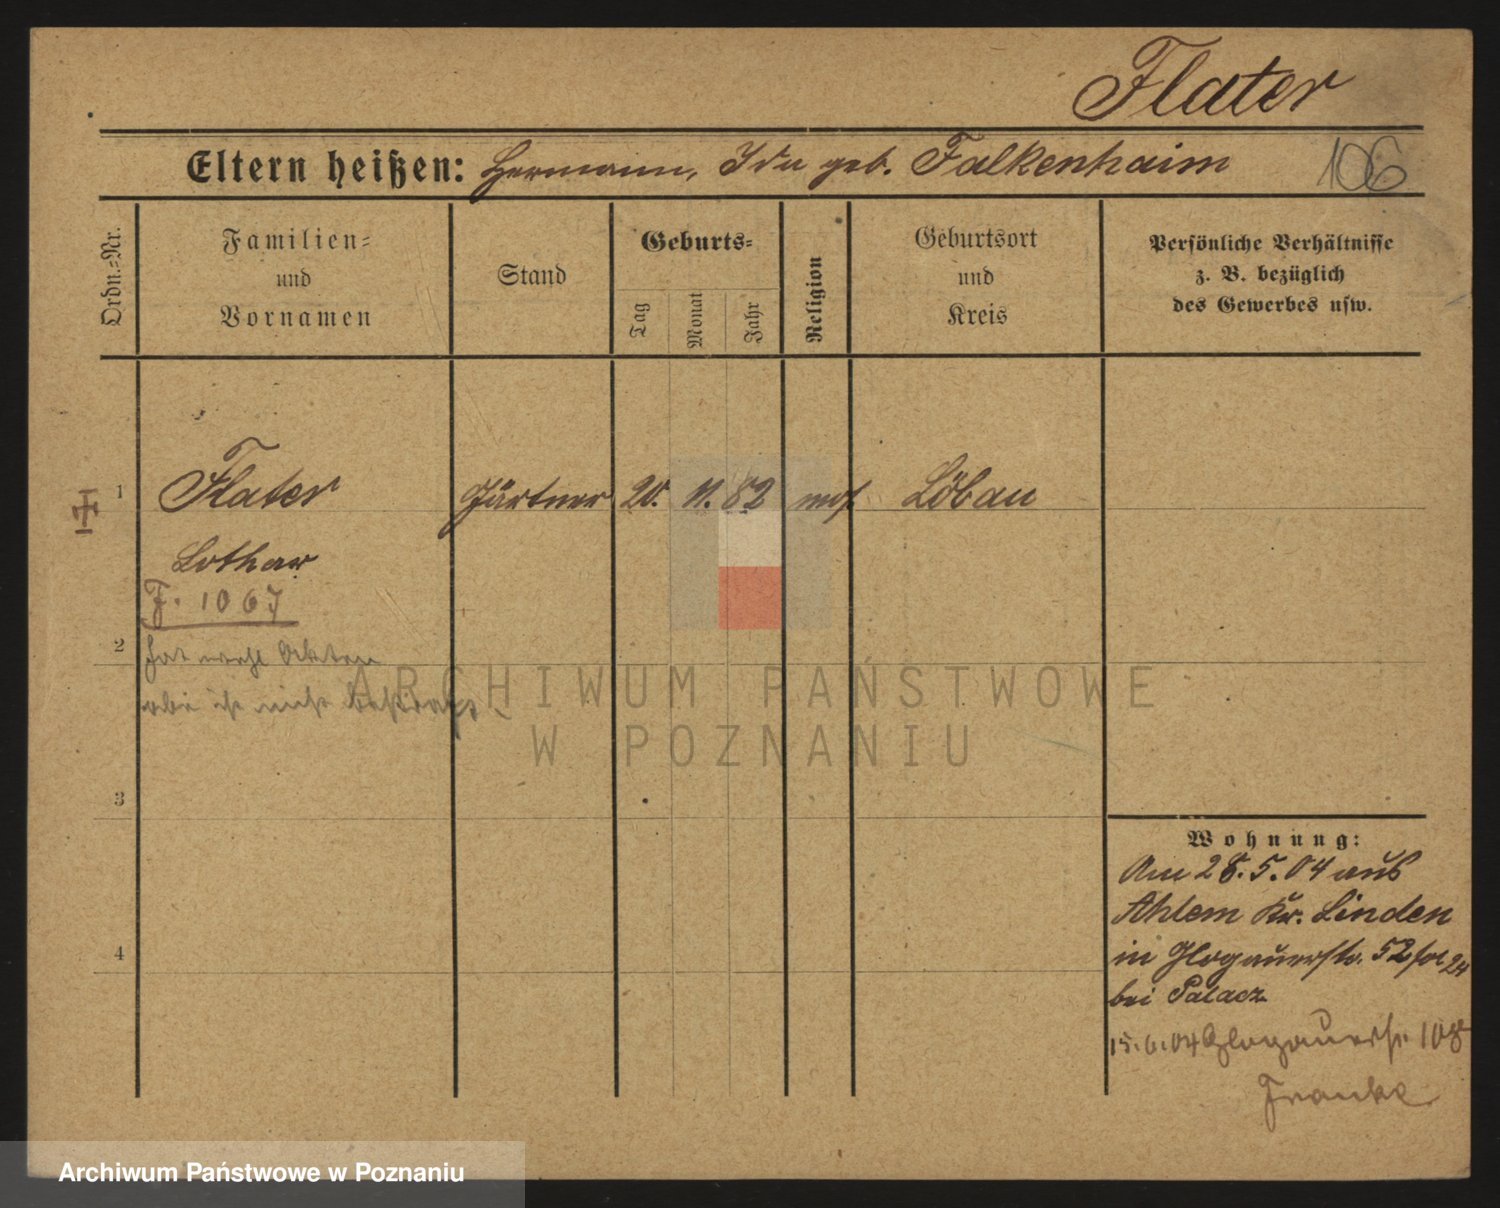 Flater
Eltern heißen: Hermann, Ida geb. Falkenhaim 106
Ordn.-Nr.
Familien-
und
Vornamen
Stand
Geburts-
Tag
Monat
Jahr
Religion
Geburtsort
und
Kreis
Persönliche Verhältnisse
z. B. bezüglich
des Gewerbes usw.
1 Flater Gärtner 20. 11. 82 mos. Löbau
Lothar
F. 1067
2 hat Akten
ist nicht
ARCHIWUM PAŃSTWOWE
W POZNANIU
3
4
Wohnung:
Am 28.5.04 aus
Ahlem Kr. Linden
in Glogauerstr. 52
bei Palacz
15.6.04 Glogauerstr. 108
Franke
Archiwum Państwowe w Poznaniu